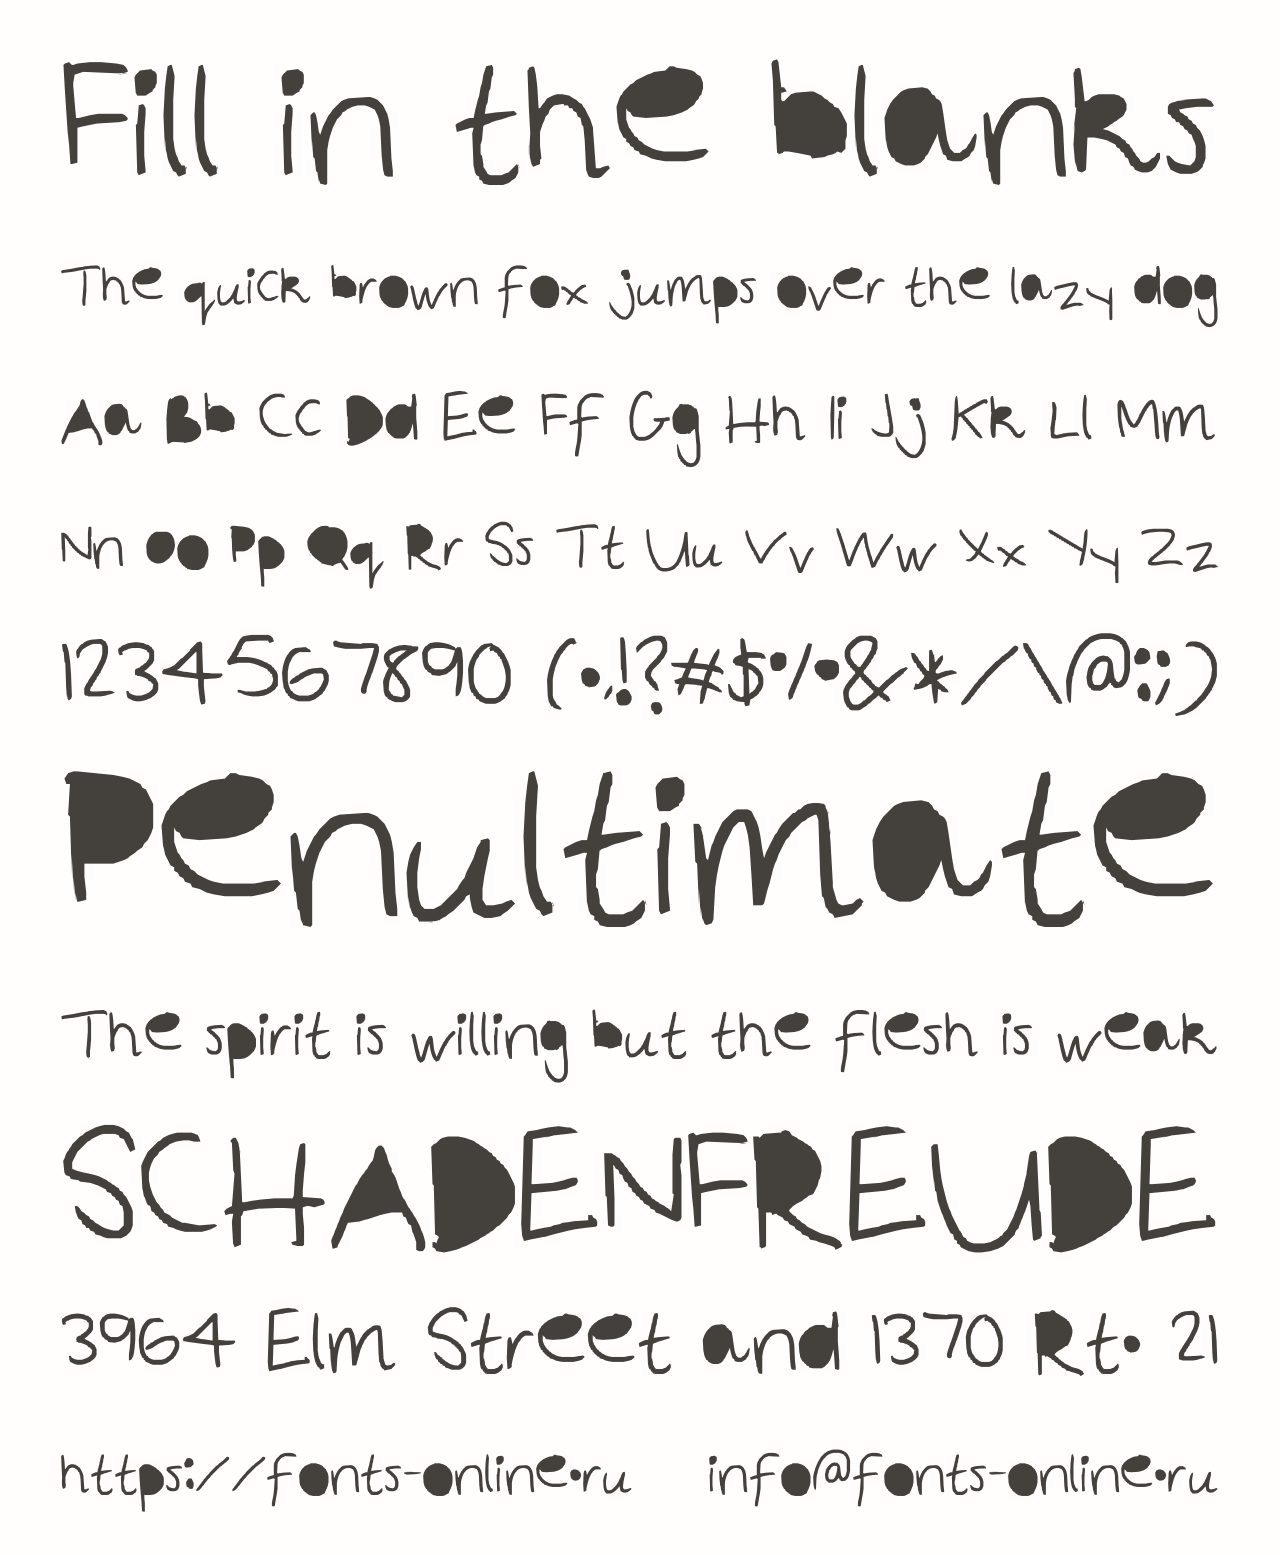 Fill in the blanks
The quick brown fox jumps over the lazy dog
Aa Bb Cc Dd Ee Ff Gg Hh Ii Jj Kk Ll Mm
Nn Oo Pp Qq Rr Ss Tt Uu Vv Ww Xx Yy Zz
1234567890 (.,!?#$%&*/\@:;)
Penultimate
The spirit is willing but the flesh is weak
SCHADENFREUDE
3964 Elm Street and 1370 Rt. 21
https://fonts-online.ru info@fonts-online.ru